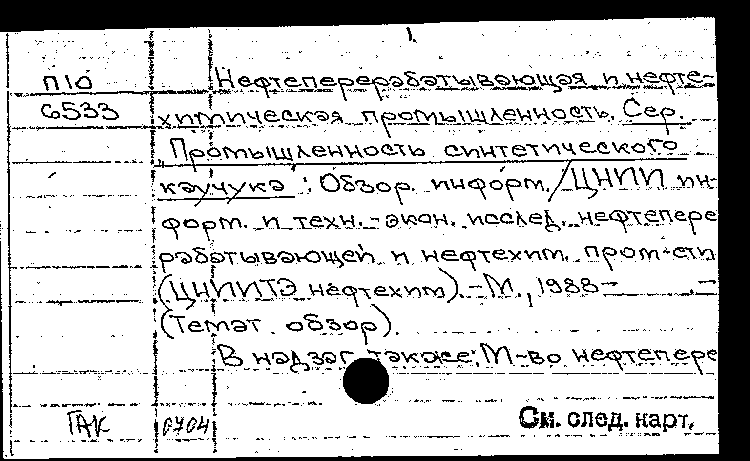 1.
П10 Нефтеперерабатывающая и нефте-
6533 химическая промышленность. Сер.
"Промышленность синтетического
каучука": Обзор. информ. / ЦНИИ ин-
форм. и техн.-экон. исслед. нефтепере
рабатывающей и нефтехим. пром-сти
(ЦНИИТЭнефтехим). - М., 1988- . -
(Темат. обзор).
В надзаг. также: М-во нефтепере
ГАК 0704 См. след. карт.